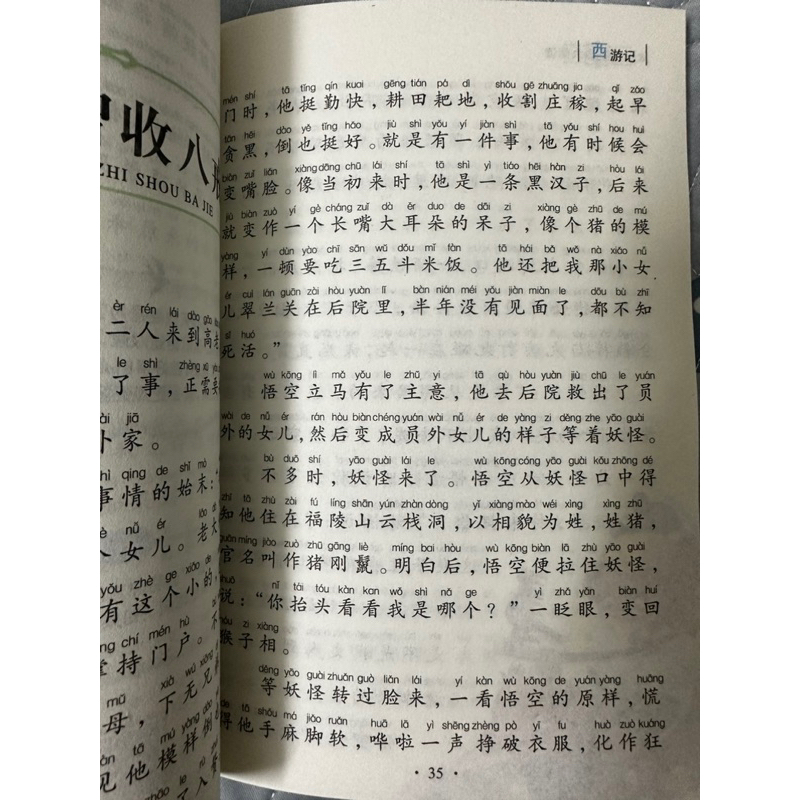 中收八
ZHI SHOU BA JIE
èr rén lái dào gāo
二人来到高老
le shì zhèng xū
了事，正需要
lǐ jiā
家。
shì qing de shǐ mò
事情的始末：
nǚ ér lǎo
个女儿。老大
yǒu zhè ge xiǎo de
有这个小的，
chēng chí mén hù
撑持门户。不
mǔ xià wú xiōng
母，下无兄
jiàn tā mú yàng dào
见他模样倒
西游记
mén shí tā tǐng qín kuai gēng tián pá dì shōu gē zhuāng jia qǐ zǎo
门时，他挺勤快，耕田耙地，收割庄稼，起早
tān hēi dào yě tǐng hǎo jiù shì yǒu yí jiàn shì tā yǒu shí hou huì
贪黑，倒也挺好。就是有一件事，他有时候会
biàn zuǐ liǎn xiàng dāng chū lái shí tā shì yì tiáo hēi hàn zi hòu lái
变嘴脸。像当初来时，他是一条黑汉子，后来
jiù biàn zuò yí gè cháng zuǐ dà ěr duo de dāi zi xiàng gè zhū de mú
就变作一个长嘴大耳朵的呆子，像个猪的模
yàng yí dùn yào chī sān wǔ dǒu mǐ fàn tā hái bǎ wǒ nà xiǎo nǚ
样，一顿要吃三五斗米饭。他还把我那小女
ér cuì lán guān zài hòu yuàn lǐ bàn nián méi yǒu jiàn miàn le dōu bù zhī
儿翠兰关在后院里，半年没有见面了，都不知
sǐ huó
死活。”
wù kōng lì mǎ yǒu le zhǔ yi tā qù hòu yuàn jiù chū le yuán
悟空立马有了主意，他去后院救出了员
wài de nǚ ér rán hòu biàn chéng yuán wài nǚ ér de yàng zi děng zhe yāo guài
外的女儿，然后变成员外女儿的样子等着妖怪。
bù duō shí yāo guài lái le wù kōng cóng yāo guài kǒu zhōng dé
不多时，妖怪来了。悟空从妖怪口中得
zhī tā zhù zài fú líng shān yún zhàn dòng yǐ xiàng mào wéi xìng xìng zhū
知他住在福陵山云栈洞，以相貌为姓，姓猪，
guān míng jiào zuò zhū gāng liè míng bai hòu wù kōng biàn lā zhù yāo guài
官名叫作猪刚鬣。明白后，悟空便拉住妖怪，
shuō nǐ tái tóu kàn kan wǒ shì nǎ ge yì zhǎ yǎn biàn huí
说：“你抬头看看我是哪个？”一眨眼，变回
hóu zi xiàng
猴子相。
děng yāo guài zhuǎn guò liǎn lái yí kàn wù kōng de yuán yàng huāng
等妖怪转过脸来，一看悟空的原样，慌
de tā shǒu má jiǎo ruǎn huā lā yì shēng zhèng pò yī fu huà zuò kuáng
得他手麻脚软，哗啦一声挣破衣服，化作狂
· 35 ·